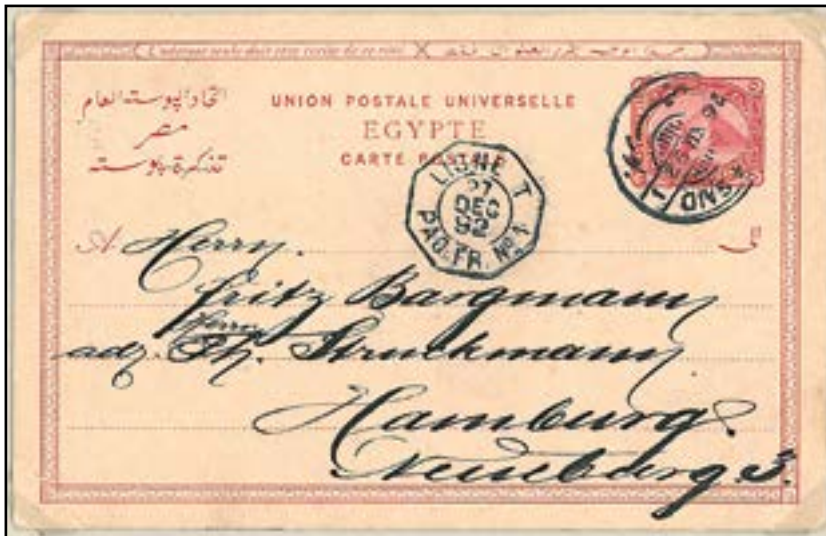 اتحاد البوسته العام
مصر
تذكرة بوسته
UNION POSTALE UNIVERSELLE
EGYPTE
CARTE POSTALE
LIGNE T
27
DEC
92
PAQ. FR. Nº 1
A Herrn.
Fritz Bargmann
Herrn
adr. Ph. Struckmann
Hamburg.
Neueburg 3.